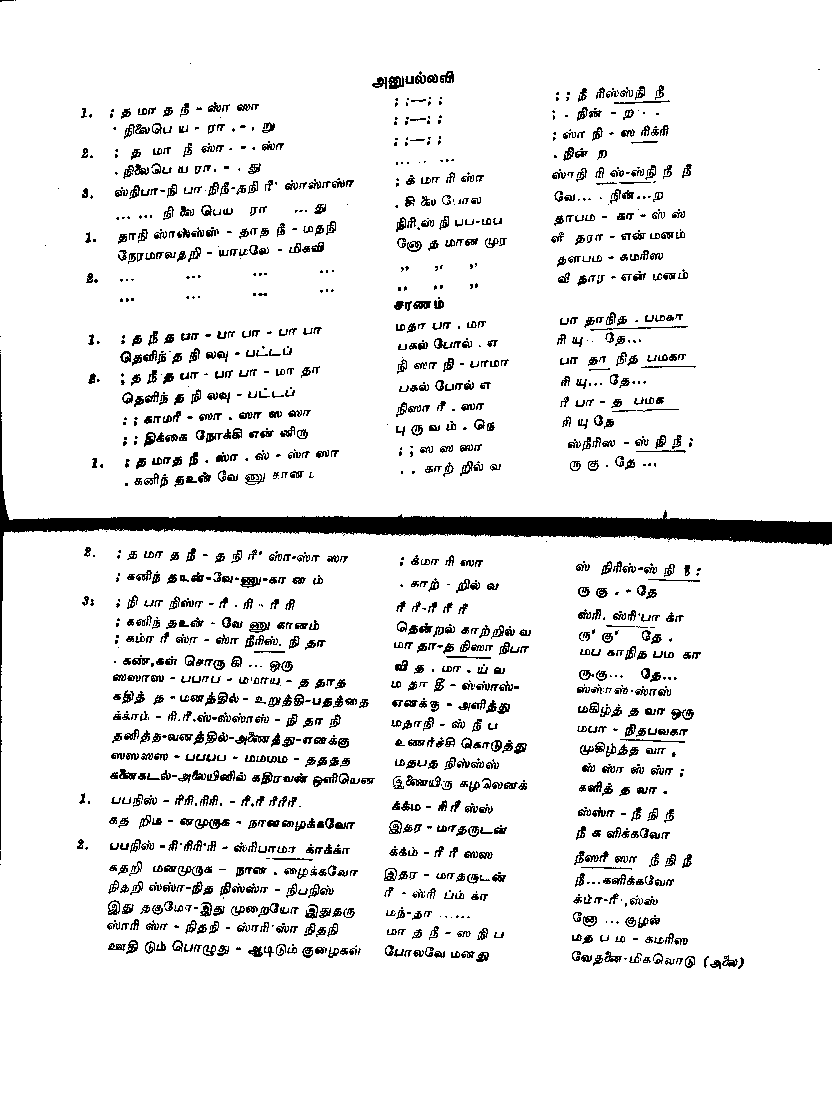 அனுபல்லவி
1. ; த மா த நீ - ஸ்ா ஸா ; ;—; ; ; ; நீ ரிஸ்ஸ்நி நீ
· நிலைபெ ய - ரா . - . று ; ;—; ; ; . நின் - ற . .
2. ; த மா நீ ஸ்ா . - . ஸ்ா ; ;—; ; ; ஸ்ா நி - ஸ ரிக்ரி
. நிலைபெ ய ரா. - . து ... ... ... . நின் ற
3. ஸ்நிபா-நி பா நிநீ-தநி ரீ' ஸ்ாஸ்ாஸ்ா ; க் மா ரி ஸ்ா ஸாநி ரி ஸ்-ஸ்நி நீ நீ
... ... நி லை பெய ரா ... து . சி லை போல வே... . நின்...ற
1. தாநி ஸ்ாஸ்ஸ்ஸ் - தாத நீ - மதநி நிரி.ஸ் நி பப-மப தாபம - கா - ஸ் ஸ்
நேரமாவதறி - யாமலே - மிகவி னோ த மான முர ளீ தரா - என் மனம்
2. ... ... ... ,, ,, ,, தளபம - கமரிஸ
... ... ... ,, ,, ,, வி தார - என் மனம்
சரணம்
1. ; த நீ த பா - பா பா - பா பா மதா பா . மா பா தாநித . பமகா
தெளிந் த நி லவு - பட்டப் பகல் போல் . எ ரி யு . தே...
2. ; த நீ த பா - பா பா - மா தா நி ஸா நி - பாமா பா தா நித பமகா
தெளிந் த நி லவு - பட்டப் பகல் போல் எ ரி யு... தே...
; ; காமரீ - ஸா . ஸா ஸ ஸா நிஸா ரீ . ஸா ரீ பா - த பமக
; ; திக்கை நோக்கி என் னிரு பு ரு வம் . நெ ரி யு தே
1. ; த மாத நீ . ஸ்ா . ஸ் - ஸ்ா ஸா ; ; ஸ ஸ ஸா ஸ்நீரிஸ - ஸ் நி நீ ;
. கனிந் தஉன் வே ணு கான . . காற் றில் வ ரு கு . தே ...
2. ; த மா த நீ - த நி ரீ' ஸ்ா-ஸ்ா ஸா ; க்மா ரி ஸா ஸ் நிரிஸ்-ஸ் நி நீ ;
; கனிந் தஉன்-வே-ணு-கா ன ம் . காற் - றில் வ ரு கு . - தே
3: ; நி பா நிஸ்ா - ரீ . ரி - ரீ ரி ரீ ரீ-ரீ ரீ ரீ ஸ்ரி. ஸ்ரி'பா க்ா
; கனிந் தஉன் - வே ணு கானம் தென்றல் காற்றில் வ ரு' கு' தே .
; கம்ா ரீ ஸ்ா - ஸ்ா நீரிஸ். நி தா மா தா-த நிஸா நிபா மப காநித பம கா
. கண்,கள் சொரு கி ... ஒரு வி த . மா . ய் வ ரு.கு... தே...
ஸஸாஸ - பபாப - மமாய - த தாத ம தா நீ - ஸ்ஸாஸ்- ஸ்ஸ்ாஸ்-ஸ்ாஸ்
கதித் த - மனத்தில் - உறுத்தி-பதத்தை எனக்கு - அளித்து மகிழ்த் த வா ஒரு
க்க்ாம் - ரி.ரீ.ஸ்-ஸ்ஸ்ாஸ் - நி தா நி மதாநி - ஸ் நீ ப மபா - நிதபவகா
தனித்த-வனத்தில்-அணைத்து-எனக்கு உணர்ச்சி கொடுத்து முகிழ்த்த வா ,
ஸஸஸஸ - பபபப - மமமம - தததத மதபத நிஸ்ஸ்ஸ் ஸ் ஸ்ா ஸ் ஸ்ா ;
கனைகடல்-அலையினில் கதிரவன் ஒளியென இணையிரு கழலெனக் களித் த வா .
1. பபநிஸ் - ரீரி.ரிரி. - ரீ.ரீ ரீரீரீ. க்க்ம - ரி ரீ ஸ்ஸ் ஸ்ஸா - நீ நி நீ
கத றிம - னமுருக - நானழைக்கவோ இதர - மாதருடன் நீ க ளிக்கவோ
2. பபநிஸ் - ரி'ரி'ரி'ரி - ஸ்ரிபாமா க்ாக்ா க்க்ம் - ரீ ரீ ஸஸ நீஸரீ ஸா நீ நி நீ
கதறி மனமுருக - நான . ழைக்கவோ இதர - மாதருடன் நீ...களிக்கவோ
நிதறி ஸ்ஸ்ா-நித நிஸ்ஸ்ா - நிபநிஸ் ரீ - ஸ்ரி ப்ம் க்ா க்ம்ா-ரீ-,ஸ்ஸ்
இது தகுமோ-இது முறையோ இதுதரு மந்-தா ...... னோ ... குழன்
ஸ்ாரி ஸ்ா - நிதநி - ஸ்ாரி'ஸ்ா நிதநி மா த நீ - ஸ நி ப மத ப ம - கமரிஸ
ஊதி டும் பொழுது - ஆடிடும் குழைகள் போலவே மனது வேதனை-மிகவொடு (அலை)